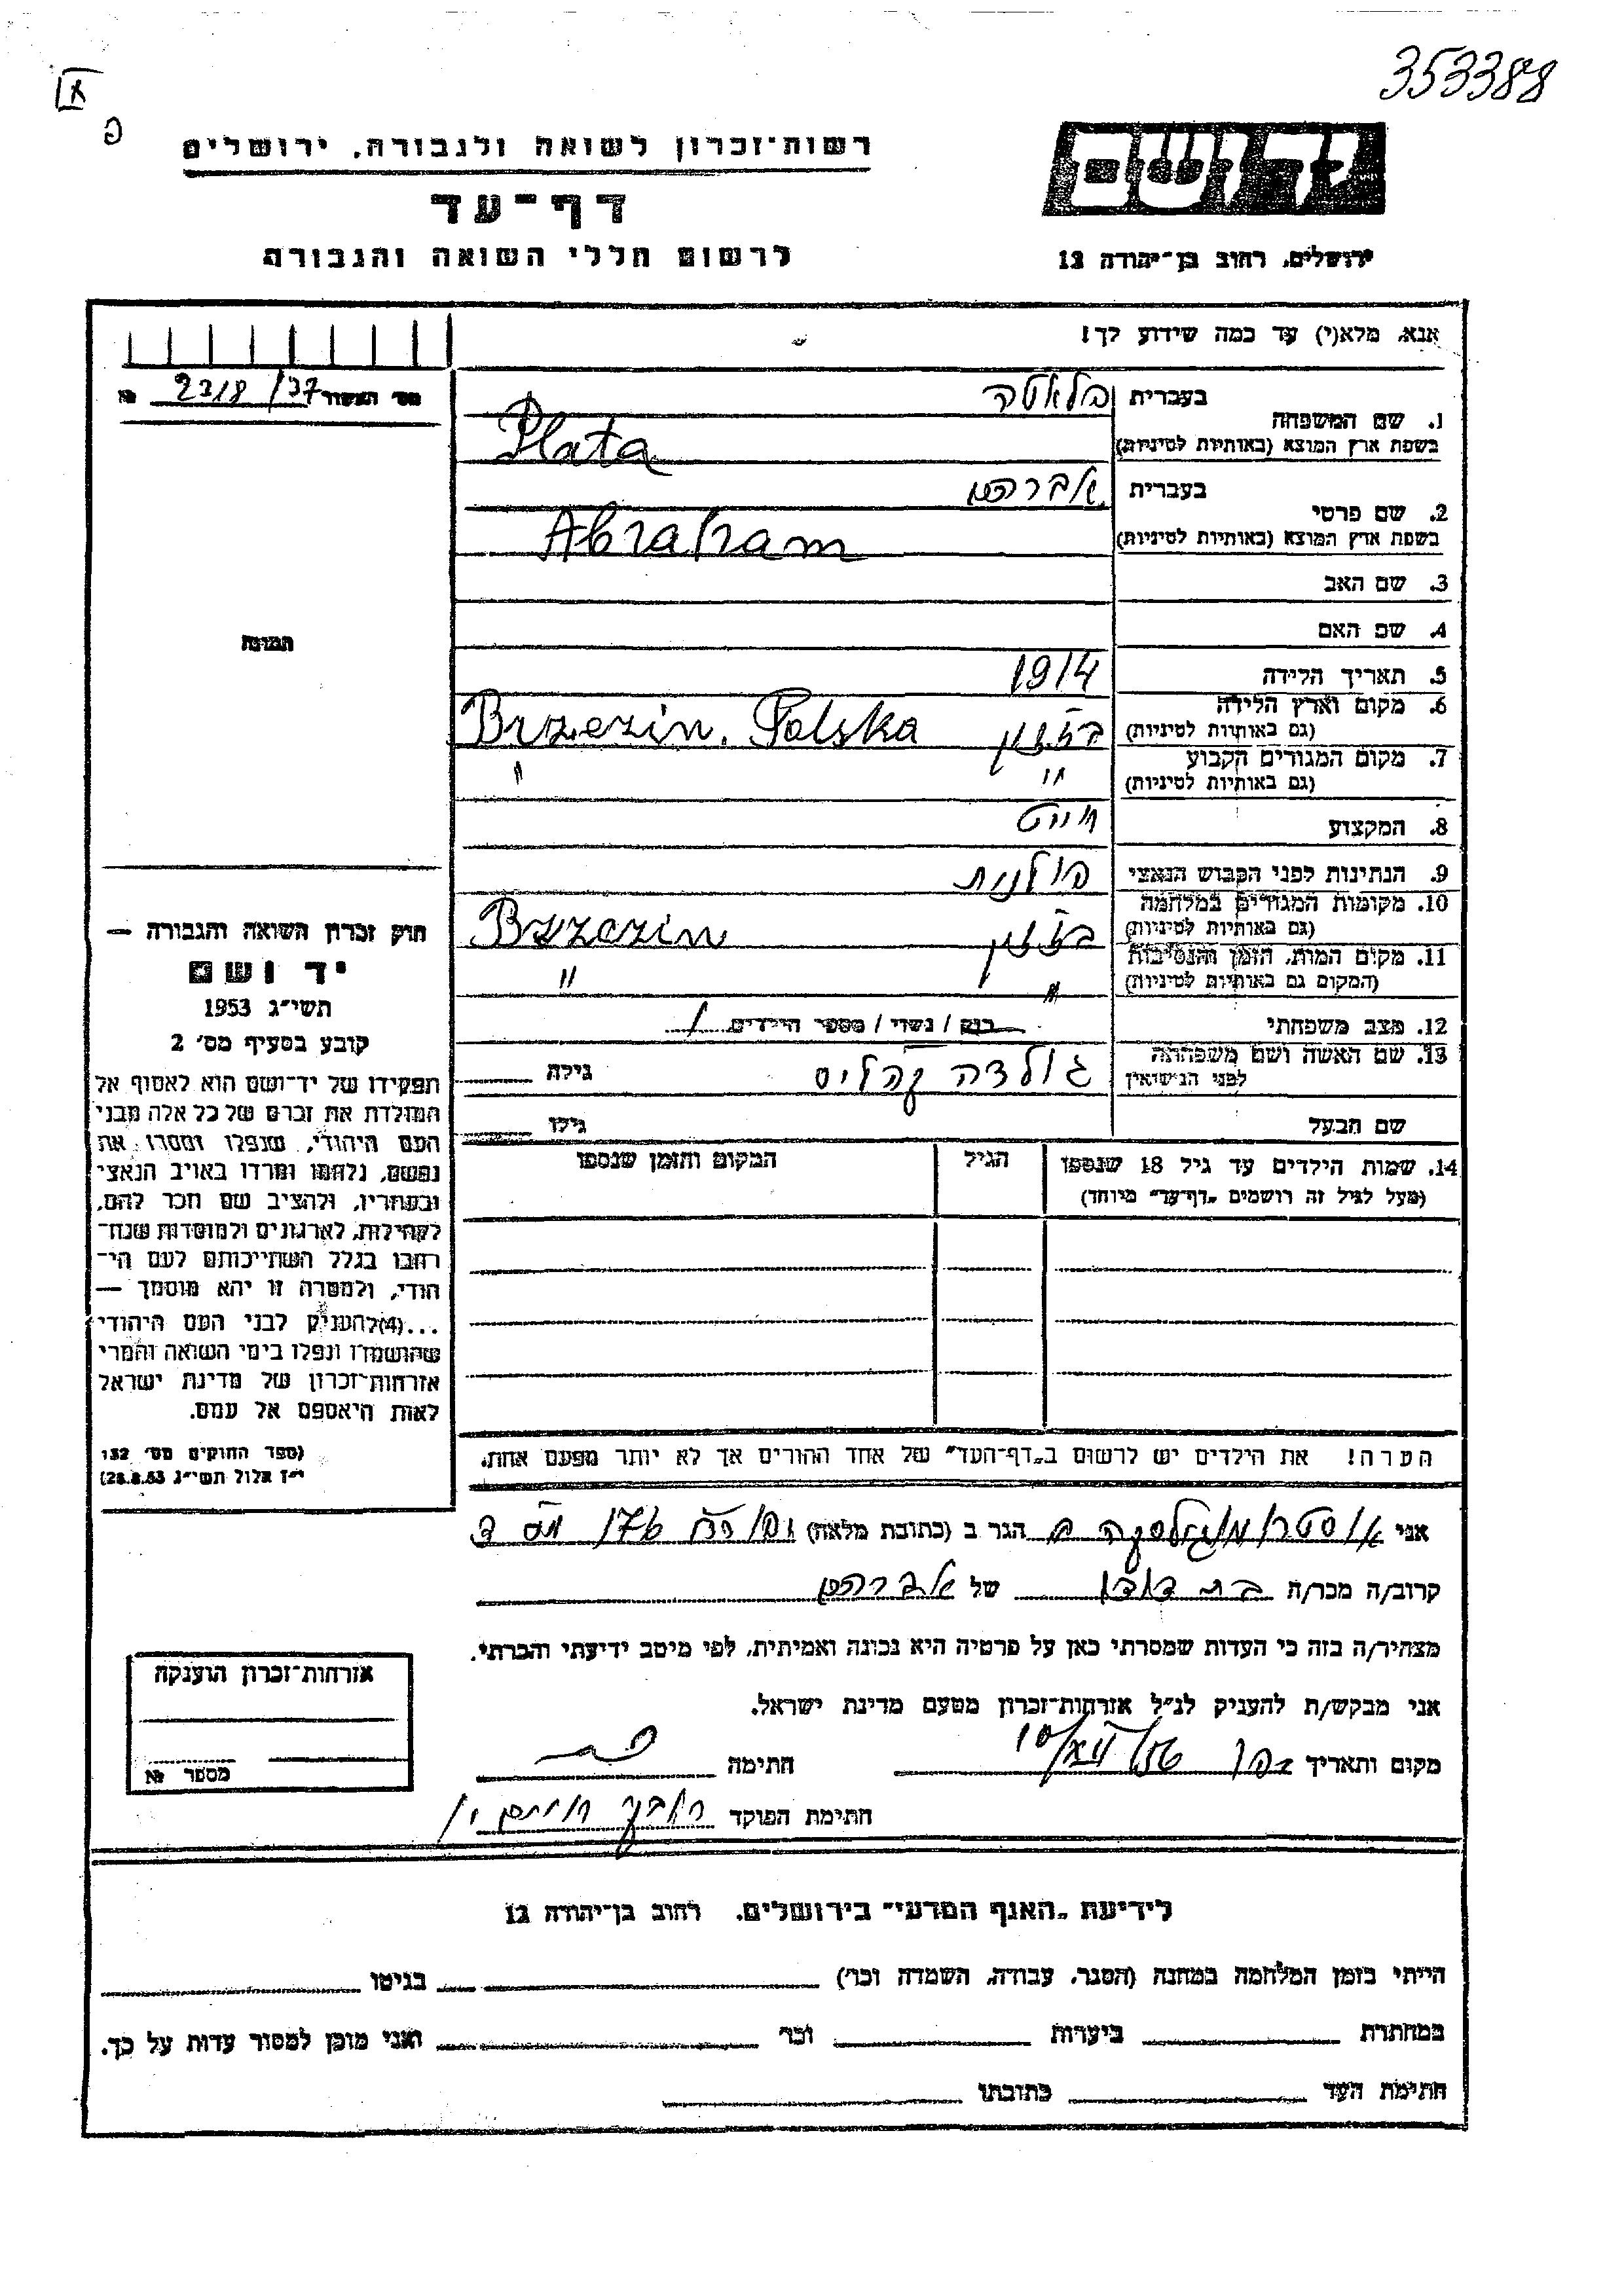 353388
א
פ
רשות־זכרון לשואה ולגבורה, ירושלים
דף־עד
לרשום חללי השואה והגבורה
יד ושם
ירושלים, רחוב בן־יהודה 12
אנא, מלא(י) עד כמה שידוע לך!
מס׳ האשור 2318/37 №
1. שם המשפחה
בעברית פלאטה
בשפת ארץ המוצא (באותיות לטיניות) Plata
2. שם פרטי
בעברית אברהם
בשפת ארץ המוצא (באותיות לטיניות) Abraham
3. שם האב
4. שם האם
5. תאריך הלידה 1914
6. מקום וארץ הלידה (גם באותיות לטיניות) בז׳ז׳ין Brzezin. Polska
7. מקום המגורים הקבוע (גם באותיות לטיניות) " "
8. המקצוע חייט
9. הנתינות לפני הכבוש הנאצי פולנית
10. מקומות המגורים במלחמה (גם באותיות לטיניות) בז׳ז׳ין Bzzezin
11. מקום המות, הזמן והנסיבות (המקום גם באותיות לטיניות) " "
12. מצב משפחתי רוק / נשוי / מספר הילדים 1
13. שם האשה ושם משפחתה לפני הנישואין גולדה גילה
שם הבעל גילו
14. שמות הילדים עד גיל 18 שנספו (מעל לגיל זה רושמים „דף־עד״ מיוחד)
הגיל
המקום והזמן שנספו
הערה! את הילדים יש לרשום ב„דף־העד״ של אחד ההורים אך לא יותר מפעם אחת.
התמונה
חוק זכרון השואה והגבורה —
יד ושם
תשי״ג 1953
קובע בסעיף מס׳ 2
תפקידו של יד־ושם הוא לאסוף אל
המולדת את זכרם של כל אלה מבני
העם היהודי, שנפלו ומסרו את
נפשם, נלחמו ומרדו באויב הנאצי
ובעוזריו, ולהציב שם וזכר להם,
לקהילות, לארגונים ולמוסדות שנח־
רבו בגלל השתייכותם לעם הי־
הודי, ולמטרה זו יהא מוסמך —
...(4) להעניק לבני העם היהודי
שהושמדו ונפלו בימי השואה והמרי
אזרחות־זכרון של מדינת ישראל
לאות היאספם אל עמם.
(ספר החוקים מס׳ 132
י״ז אלול תשי״ג 28.8.53)
אני הגר ב (כתובת מלאה)
קרוב/ה מכר/ה בת דודו של אברהם
מצהיר/ה בזה כי העדות שמסרתי כאן על פרטיה היא נכונה ואמיתית, לפי מיטב ידיעתי והכרתי.
אני מבקש/ת להעניק לנ״ל אזרחות־זכרון מטעם מדינת ישראל.
מקום ותאריך חתימה
חתימת הפוקד
אזרחות־זכרון הוענקה
מספר №
לידיעת „האגף המדעי״ בירושלים, רחוב בן־יהודה 12
הייתי בזמן המלחמה במחנה (הסגר, עבודה, השמדה וכו׳) בגיטו
במחתרת ביערות וכו׳ ואני מוכן למסור עדות על כך.
חתימת העד כתובתו